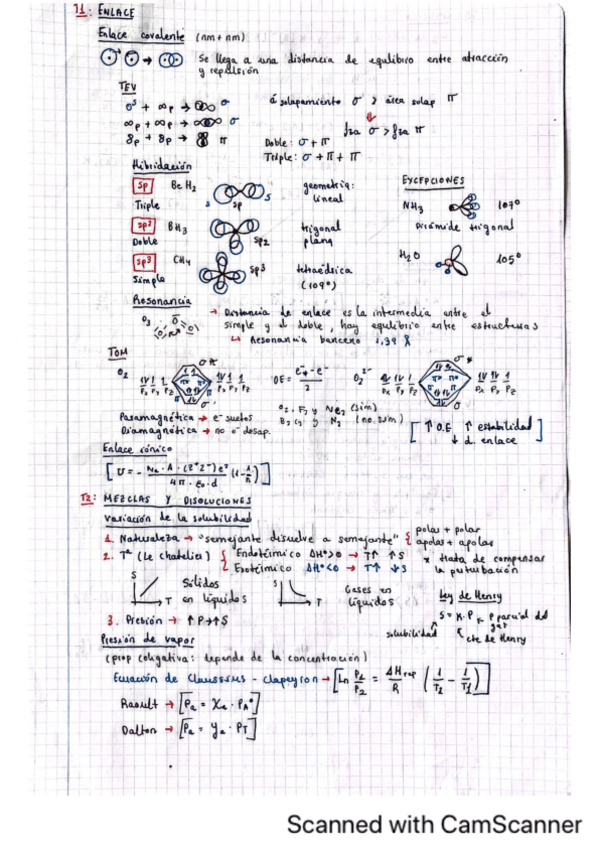 T1: ENLACE
Enlace covalente (nm + nm)
Se llega a una distancia de equilibro entre atracción
y repulsión
TEV
σs + ∞p → σ
∞p + ∞p → σ
8p + 8p → π
á solapamiento σ > área solap π
fza σ > fza π
Doble: σ + π
Triple: σ + π + π
Hibridación
sp BeH2 s sp s geometría: lineal
Triple
sp² BH3 sp2 trigonal plana
Doble
sp³ CH4 sp3 tetraédrica (109º)
Simple
EXCEPCIONES
NH3 107º
Pirámide trigonal
H2O 105º
Resonancia
O3
→ Distancia de enlace es la intermedia entre el
simple y el doble, hay equilibrio entre estructuras
↳ Resonancia benceno 1,39 Å
TOM
O2 σ* Px Py Pz π* π σ Px Py Pz
OE = e⁻ - e⁻* / 2
O2²⁻ σ* Px Py Pz π* π σ Px Py Pz
Paramagnética → e⁻ sueltos
Diamagnética → no e⁻ desap.
O2, F2 y Ne2 (sim)
B2 C2 y N2 (no sim)
[↑ O.E ↑ estabilidad ↓ d. enlace]
Enlace iónico
[U = - NA · A · (Z⁺Z⁻) e² / 4π · ε0 · d (1 - 1/n)]
T2: MEZCLAS Y DISOLUCIONES
Variación de la solubilidad
1. Naturaleza → "semejante disuelve a semejante" { polar + polar
apolar + apolar
2. Tª (Le chatelier) { Endotérmico ΔHº>0 → T↑ ↑S
Exotérmico ΔHº<0 → T↑ ↓S
* trata de compensar
la perturbación
S T Sólidos en líquidos
S T Gases en líquidos
Ley de Henry
S = K · P
P parcial del gas
solubilidad
cte de Henry
3. Presión → ↑P → ↑S
Presión de vapor
(prop coligativa: depende de la concentración)
Ecuación de Claussius - clapeyron → [Ln P1/P2 = ΔHvap/R (1/T2 - 1/T1)]
Raoult → [Pa = Xa · PAº]
Dalton → [Pa = ya · PT]
Scanned with CamScanner